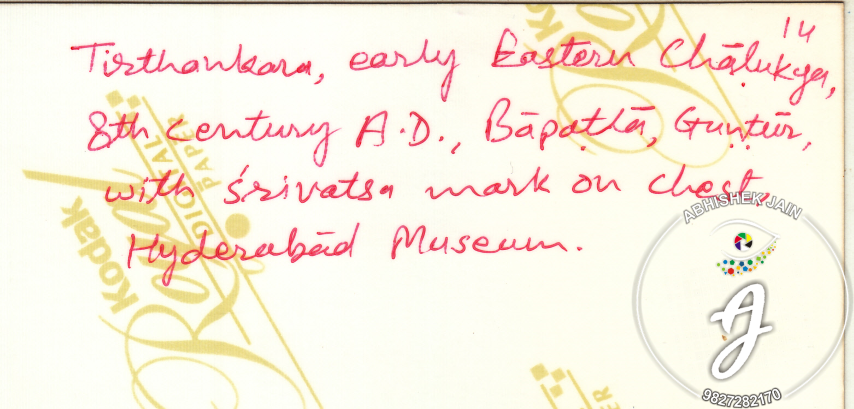 14
Tirthankara, early Eastern Chālukya,
8th century A.D., Bāpaṭlā, Guṇṭūr,
with śrivatsa mark on chest,
Hyderabād Museum.
Kodak
Royal
DIGITAL
PAPER
Kodak
ABHISHEK JAIN
9827282170